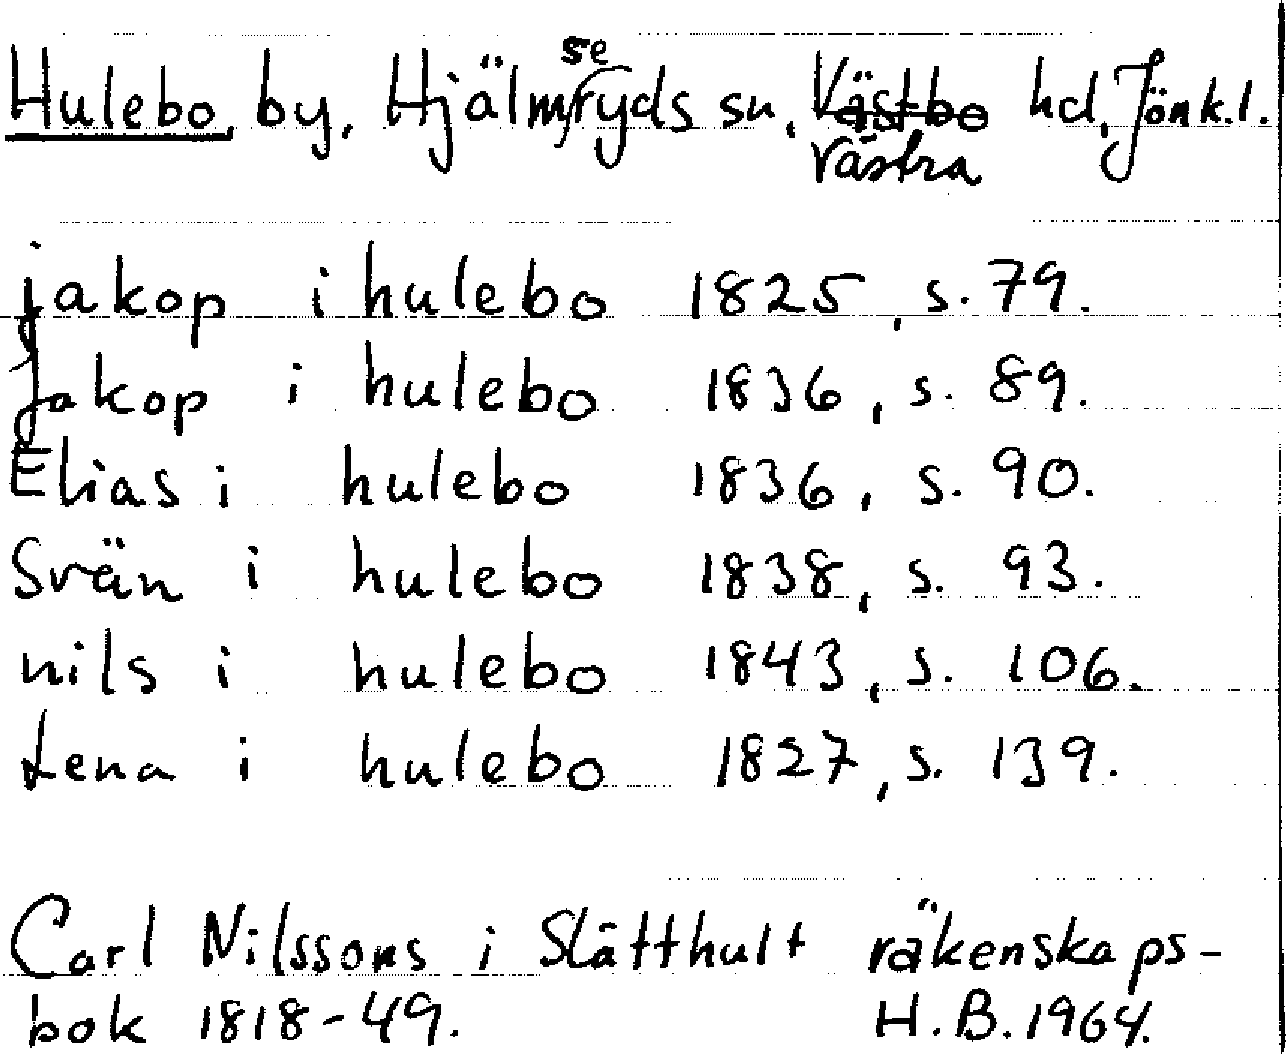 Hulebo by, Hjälmseryds sn, Västbo hd, Jönk.l.
Västra
jakop i hulebo 1825, s. 79.
Jakop i hulebo 1836, s. 89.
Elias i hulebo 1836, s. 90.
Svän i hulebo 1838, s. 93.
nils i hulebo 1843, s. 106.
Lena i hulebo 1827, s. 139.
Carl Nilssons i Slätthult räkenskaps-
bok 1818-49. H.B. 1964.